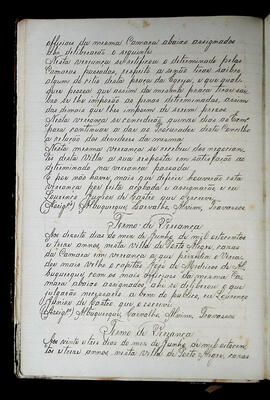 officiaes da mesma Camara abaixo assignados
se deliberou o seguinte
Nesta vereança se ratificou o determinado pelas
Camaras passadas, respeito a se não tirar saibro
algum do sitio desta praça da Igreja, e que qual
quer pessoa que assim da mesma praça tirar sai-
bro se lhe imporão as penas determinadas, assim
das demais que lhes impuzerem serem prezos.
Nesta vereança se concedêo quinze dias ao Com.
para continuar a dar ao Procurador deste Conselho
a relação dos devedores da mesma
Nesta mesma vereança se recebeu dos negocian
tes desta Villa a sua resposta em satisfação ao
determinado na vereança passada.
E por não haver mais que deferir houverão esta
vereança por feita acabada e assignarão e eu
Lourenço Junior de Castro que escrevi
(Assign.) Albuquerque, Carvalho, Alvim, Travassos
Termo de Vereança
Aos dezoito dias do mez de Junho de mil oitocentos
e treze annos nesta villa de Porto Alegre, cazas
da Camara em vereança a que prezidio o Verea
dor mais velho o capitão José de Medeiros de Al
buquerque com os mais officiaes da mesma Ca
mara abaixo assignados, ahi se deliberou o que
julgarão necessario a bem do publico, eu Lourenço
Junior de Castro que o escrevi.
(Assign.) Albuquerque, Carvalho, Alvim, Travassos
Termo de Vereança
Aos vinte e tres dias do mez de Junho de mil oitocen
tos e treze annos, nesta villa de Porto Alegre, cazas